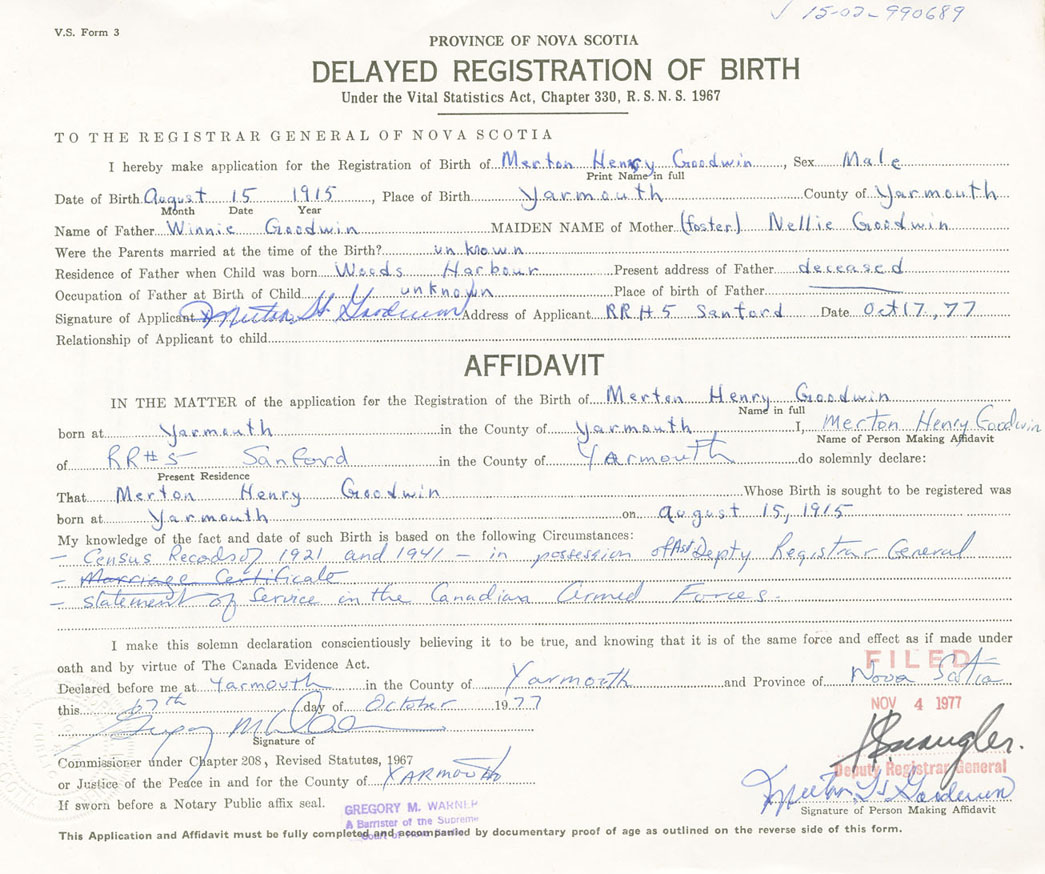 ✓ 15-02-990689
V.S. Form 3
PROVINCE OF NOVA SCOTIA
DELAYED REGISTRATION OF BIRTH
Under the Vital Statistics Act, Chapter 330, R. S. N. S. 1967
TO THE REGISTRAR GENERAL OF NOVA SCOTIA
I hereby make application for the Registration of Birth of Merton Henry Goodwin, Sex Male
Print Name in full
Date of Birth August 15 1915, Place of Birth Yarmouth County of Yarmouth
Month Date Year
Name of Father Winnie Goodwin MAIDEN NAME of Mother (foster) Nellie Goodwin
Were the Parents married at the time of the Birth? unknown
Residence of Father when Child was born Woods Harbour Present address of Father deceased
Occupation of Father at Birth of Child unknown Place of birth of Father
Signature of Applicant X Merton H. Goodwin Address of Applicant RR#5 Sanford Date Oct 17, 77
Relationship of Applicant to child
AFFIDAVIT
IN THE MATTER of the application for the Registration of the Birth of Merton Henry Goodwin
Name in full
born at Yarmouth in the County of Yarmouth I, Merton Henry Goodwin
Name of Person Making Affidavit
of RR#5 Sanford in the County of Yarmouth do solemnly declare:
Present Residence
That Merton Henry Goodwin Whose Birth is sought to be registered was
born at Yarmouth on August 15, 1915
My knowledge of the fact and date of such Birth is based on the following Circumstances:
- Census Records of 1921 and 1941 - in possession of Asst Depty Registrar General
- Marriage Certificate
- statement of Service in the Canadian Armed Forces.
I make this solemn declaration conscientiously believing it to be true, and knowing that it is of the same force and effect as if made under
oath and by virtue of The Canada Evidence Act.
FILED
Declared before me at Yarmouth in the County of Yarmouth and Province of Nova Scotia
this day of October 1977
NOV 4 1977
Signature of
Commissioner under Chapter 208, Revised Statutes, 1967
Deputy Registrar General
or Justice of the Peace in and for the County of YARMOUTH
Merton H Goodwin
If sworn before a Notary Public affix seal.
Signature of Person Making Affidavit
GREGORY M. WARNER
A Barrister of the Supreme
This Application and Affidavit must be fully completed and accompanied by documentary proof of age as outlined on the reverse side of this form.